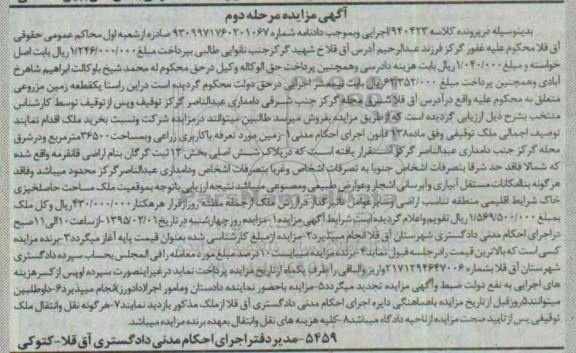 آگهی مزایده مرحله دوم
بدینوسیله درپرونده کلاسه ۹۴۰۴۲۳ اجرایی وبموجب دادنامه شماره ۹۳۰۹۹۷۱۷۶۰۲۰۱۰۶۷ صادره ازشعبه اول محاکم عمومی حقوقی
آق قلا محکوم علیه غفور گرکز فرزند عبدالرحیم آدرس آق قلاخ شهید گرکز جنب نانوایی طالبی بپرداخت مبلغ ۱/۲۴۶/۰۰۰/۰۰۰ ریال بابت اصل
خواسته و مبلغ ۱/۰۴۰/۰۰۰ ریال بابت هزینه دادرسی وهمچنین پرداخت حق الوکاله وکیل درحق محکوم له محمد شیخ باوکالت ابراهیم شاهرخ
آبادی وهمچنین پرداخت مبلغ ۶۲/۳۵۲/۰۰۰ ریال بابت نیمعشر اجرایی درحق دولت محکوم گردیده است دراین راستا یکقطعه زمین مزروعی
متعلق به محکوم علیه واقع درآدرس آق قلا شرق محله گرکز جنب شرقی دامداری عبدالناصر گرکز توقیف وپس ازتوقیف توسط کارشناس
منتخب بشرح ذیل ارزیابی گردیده است که ازطریق مزایده بفروش میرسد طالبین میتوانند درمزایده شرکت ونسبت بخرید ملک اقدام نمایند
توصیف اجمالی ملک توقیفی وفق ماده ۱۳۸ قانون اجرای احکام مدنی ۱-زمین مورد تعرفه باکاربری زراعی وبمساحت ۳۶۵۰۰ مترمربع ودرشرق
محله گرکز جنب دامداری عبدالناصر گرکز استقرار یافته است که درپلاک شش اصلی بخش ۱۳ ثبت گرگان بنام اراضی قانقرمه واقع شده
که شمالا فاقد حد شرقا بتصرفات اشخاص جنوبا به تصرفات اشخاص وغربا بتصرفات اشخاص ودامداری عبدالناصر گرکز محدود میباشد وفاقد
هرگونه بناامکانات مستقل آبیاری وآبرسانی اشجار وعوارض طبیعی ومصنوعی میباشد نتیجه ارزیابی باتوجه بموقعیت ملک مساحت حاصلخیزی
خاک شرایط اقلیمی منطقه تناسب اراضی وسایر عوامل تاثیرگذار درارزش ملک ازجمله مظنه روز ازقرار هرهکتار ۴۳۰/۰۰۰/۰۰۰ ریال وکل ملک
بمبلغ ۱/۵۶۹/۵۰۰/۰۰۰ ریال تقویم واعلام گردیده است شرایط آگهی مزایده ۱-مزایده روز چهارشنبه در تاریخ ۱۳۹۵/۰۲/۰۱ ازساعت ۱۰ الی ۱۱ صبح
دراجرای احکام مدنی دادگستری شهرستان آق قلا انجام میپذیرد ۲-مزایده ازمبلغ کارشناسی شده بعنوان قیمت پایه آغاز میگردد ۳-برنده مزایده
کسی است که بالاترین قیمت رادرجلسه قبول نماید ۴-برنده مزایده میبایست ۱۰ درصد مبلغ مورد معامله را فی المجلس بحساب سپرده دادگستری
شهرستان آق قلا بشماره ۲۱۷۱۲۹۴۶۴۷۰۰۶ واریز والباقی را ظرف یکماه ازتاریخ مزایده پرداخت نماید درغیراینصورت سپرده اوپس ازکسرهزینه
های اجرایی به نفع دولت ضبط وآگهی مزایده تجدید میگردد ۵-مزایده باحضور نماینده دادستان ومامور اجرا(دادورز)انجام میپذیرد ۶-داوطلبین
میتوانند ۵ روز قبل ازتاریخ مزایده باهماهنگی دایره اجرای احکام مدنی دادگستری آق قلا ازملک مذکور بازدید نمایند ۷-هرگونه نقل وانتقال ملک
توقیفی پس ازتایید صحت مزایده ازناحیه دادگاه میباشد ۸-کلیه هزینه های نقل وانتقال بعهده برنده مزایده میباشد.
۵۴۵۹-مدیر دفتر اجرای احکام مدنی دادگستری آق قلا-کتوکی